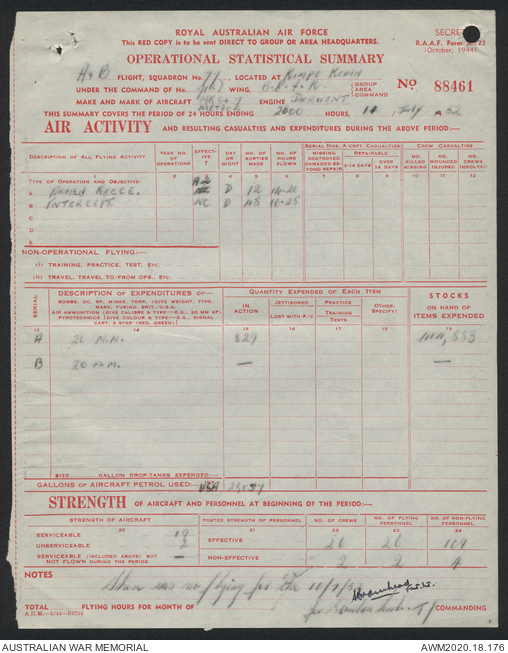 ROYAL AUSTRALIAN AIR FORCE
This RED COPY is to be sent DIRECT TO GROUP OR AREA HEADQUARTERS.
SECRET
R.A.A.F. Form A.T23
(October, 1944)
OPERATIONAL STATISTICAL SUMMARY
A & B FLIGHT, SQUADRON No. 77, LOCATED AT KIMPO KOREA
UNDER THE COMMAND OF No. WING, GROUP AREA COMMAND
No 88461
MAKE AND MARK OF AIRCRAFT METEOR ENGINE DERWENT
THIS SUMMARY COVERS THE PERIOD OF 24 HOURS ENDING 2000 HOURS, July 1952
AIR ACTIVITY AND RESULTING CASUALTIES AND EXPENDITURES DURING THE ABOVE PERIOD:—
DESCRIPTION OF ALL FLYING ACTIVITY
TASK NO. OF OPERATIONS
EFFECT-IVE ?
DAY OR NIGHT
NO. OF SORTIES MADE
NO. OF HOURS FLOWN
SERIAL NOS. A'CRFT. CASUALTIES
MISSING DESTROYED DAMAGED BEYOND REPAIR
REPAIRABLE
OVER 14 DAYS
CREW CASUALTIES
NO. KILLED MISSING
NO. WOUNDED INJURED
NO. CREWS INVOLVED
1 2 3 4 5 6 7 8 9 10 11 12
TYPE OF OPERATION AND OBJECTIVE:
A ARMED RECCE. D 12 14-20
B INTERCEPT. NC D
C
D
E
NON-OPERATIONAL FLYING:—
(I) TRAINING, PRACTICE, TEST, ETC.
(II) TRAVEL, TRAVEL TO/FROM OPS., ETC.
SERIAL
DESCRIPTION OF EXPENDITURES OF—
BOMBS, DC, RP, MINES, TORP. (GIVE WEIGHT, TYPE, MARK, FUSING, BRIT./U.S.A.
AIR AMMUNITION (GIVE CALIBRE & TYPE—E.G., 20 MM AP)
PYROTECHNICS (GIVE COLOUR & TYPE—E.G., SIGNAL CART. 2 STAR (RED, GREEN.)
QUANTITY EXPENDED OF EACH ITEM
IN ACTION
JETTISONED
LOST WITH A/C
PRACTICE
TRAINING
TESTS
OTHER: SPECIFY)
STOCKS
ON HAND OF ITEMS EXPENDED
13 14 15 16 17 18 19
A 20 M.M. 829
B 20 M.M. — —
SIZE GALLON DROP-TANKS EXPENDED:—
GALLONS OF AIRCRAFT PETROL USED:— USA
STRENGTH OF AIRCRAFT AND PERSONNEL AT BEGINNING OF THE PERIOD:—
STRENGTH OF AIRCRAFT
POSTED STRENGTH OF PERSONNEL
NO. OF CREWS
NO. OF FLYING PERSONNEL
NO. OF NON-FLYING PERSONNEL
20 21 22 23 24
SERVICEABLE 19
UNSERVICEABLE 2
EFFECTIVE 26 26 109
SERVICEABLE (INCLUDED ABOVE) BUT NOT FLOWN DURING THE PERIOD —
NON-EFFECTIVE 2 2 4
NOTES
There was no flying for the 10/7/52
TOTAL FLYING HOURS FOR MONTH OF
for COMMANDING
AUSTRALIAN WAR MEMORIAL
AWM2020.18.176